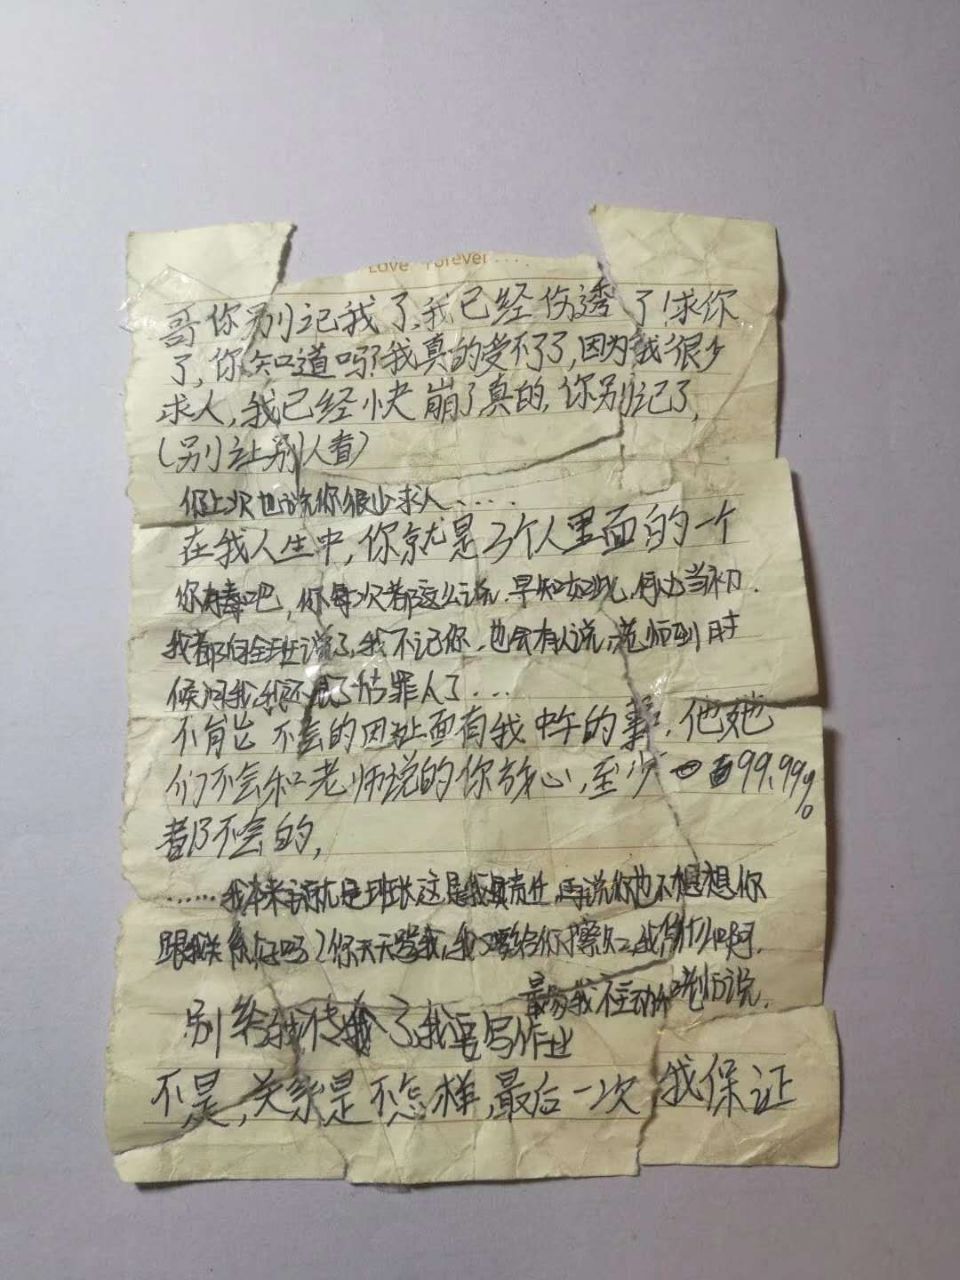 Love Forever....
哥你别记我了,我已经伤透了!求你
了,你知道吗?我真的受不了了,因为我很少
求人,我已经快崩了真的,你别记了,
(别让别人看)
你上次也说你很少求人.....
在我人生中,你就是3个人里面的一个
你有毒吧,你每次都这么说.早知如此,何必当初.
我都向全班说了,我不记你.也会有人说,老师到时
候问我,我还成了估罪人了...
不肯岂不会的因班面有我中午的事,他她
们不会和老师说的你放心,至少99.99%
都不会的,
......我本来就是班长这是我责任,再说你也不想想你
跟我关系好吗?你天天骂我,我又要给你擦,我凭什么啊.
最多我不主动和老师说.
别给我传了,我写作业
不是,关系是不怎样,最后一次 我保证